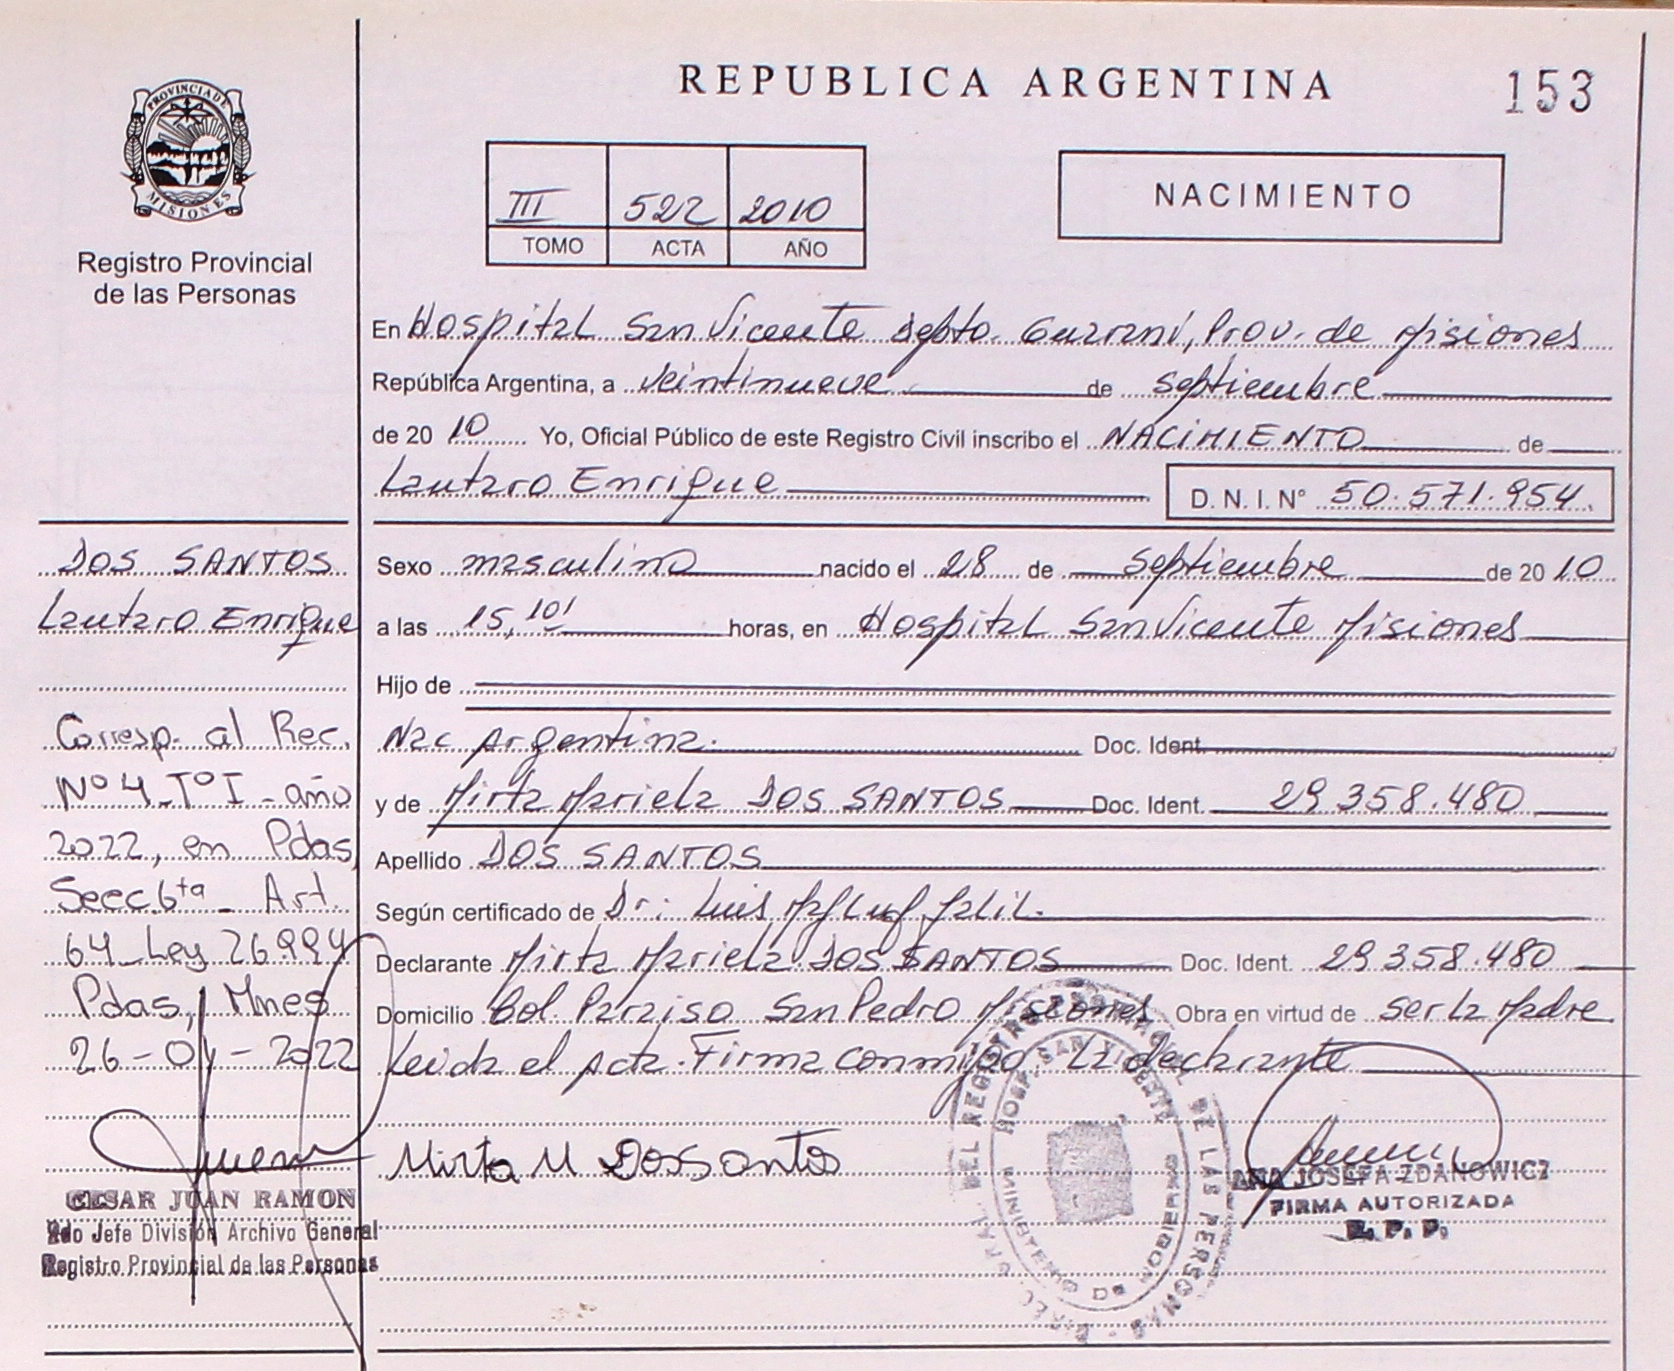 REPUBLICA ARGENTINA
153
PROVINCIA DE
MISIONES
Registro Provincial
de las Personas
III 522 2010
TOMO ACTA AÑO
NACIMIENTO
En Hospital San Vicente Depto. Guaraní, Prov. de Misiones
República Argentina, a veintinueve de septiembre
de 20 10 Yo, Oficial Público de este Registro Civil inscribo el NACIMIENTO de
Lautaro Enrique
D. N. I. N° 50.571.954.
Sexo masculino nacido el 28 de septiembre de 20 10
a las 15,10' horas, en Hospital San Vicente Misiones
Hijo de
Nac Argentina. Doc. Ident.
y de Mirta Mariela DOS SANTOS Doc. Ident. 29.358.480
Apellido DOS SANTOS
Según certificado de Dr: Luis
Declarante Mirta Mariela DOS SANTOS Doc. Ident. 29.358.480
Domicilio Col. Paraiso San Pedro Misiones Obra en virtud de ser la Madre
Leida el Acta. Firma conmigo la declarante
Mirta M Dos santos
ANA JOSEFA ZDANOWICZ
FIRMA AUTORIZADA
R. P. P.
DOS SANTOS
Lautaro Enrique
Corresp. al Rec.
Nº 4 Tº I - año
2022, en Pdas,
Secc. 6ta - Art.
64 - Ley 26994
Pdas, Mnes
26-04-2022
CESAR JUAN RAMON
2do Jefe División Archivo General
Registro Provincial de las Personas